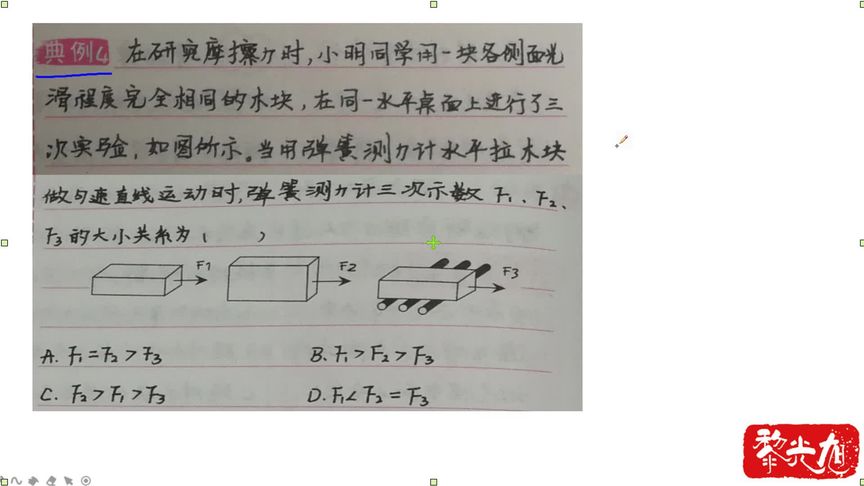 典例4 在研究摩擦力时,小明同学用一块各侧面光
滑程度完全相同的木块,在同一水平桌面上进行了三
次实验,如图所示。当用弹簧测力计水平拉木块
做匀速直线运动时,弹簧测力计三次示数F1、F2、
F3的大小关系为( )
F1 F2 F3
A. F1=F2>F3 B. F1>F2>F3
C. F2>F1>F3 D. F1<F2=F3
黎光旭